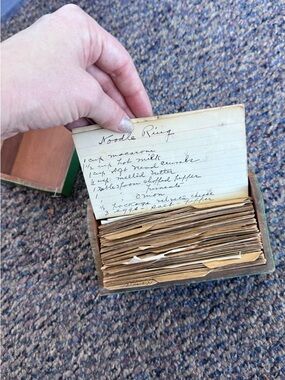 Noodle Ring
1 cup macaroni
1 cup hot milk
1 cup soft bread crumbs
½ cup melted butter
1 tablespoon chopped pepper
Pimento
Onion
½ package velveeta cheese